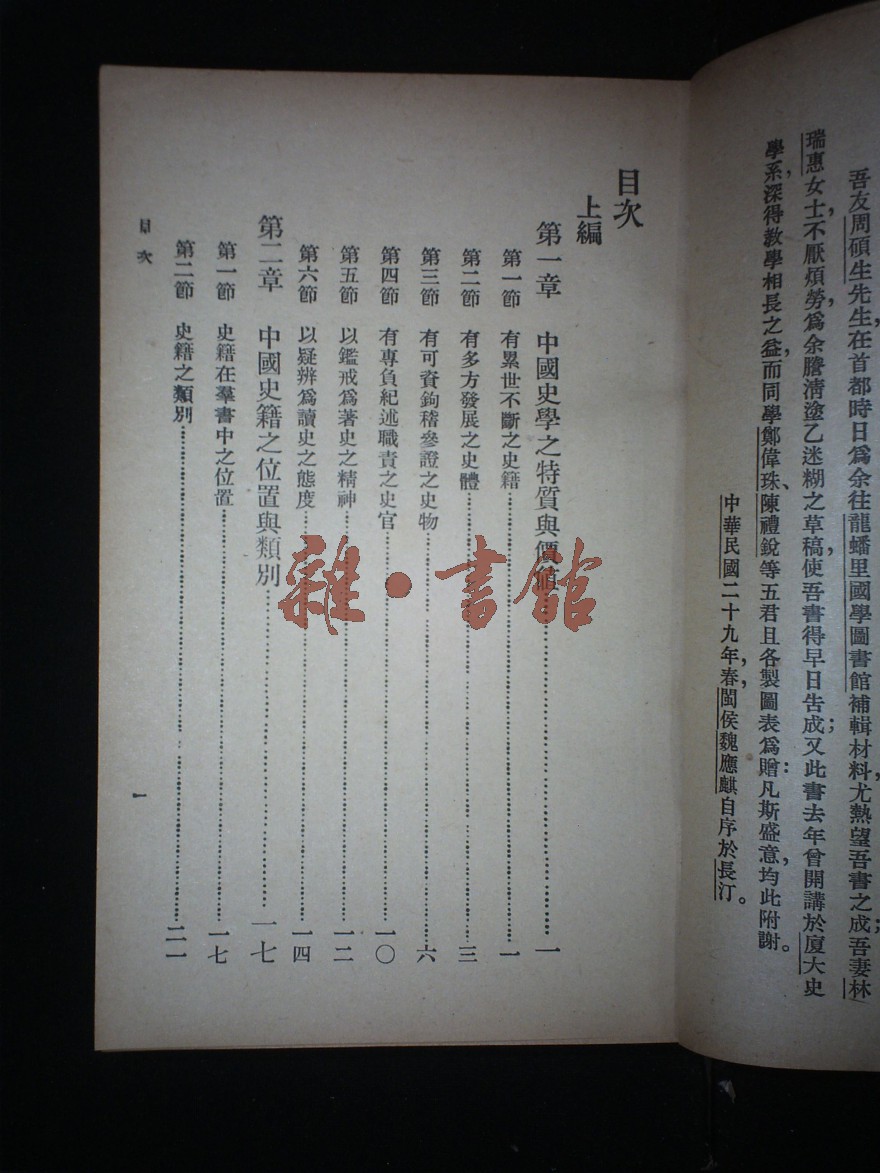 吾友周碩生先生在首都時日爲余往龍蟠里國學圖書館補輯材料，尤熱望吾書之成；吾妻林
瑞惠女士，不厭煩勞，爲余謄淸塗乙迷糊之草稿，使吾書得早日告成；又此書去年曾開講於廈大史
學系，深得敎學相長之益，而同學鄭偉珠、陳禮銳等五君且各製圖表爲贈：凡斯盛意，均此附謝。
中華民國二十九年，春，閩侯魏應麒自序於長汀。
目次
上編
第一章 中國史學之特質與價值……一
第一節 有累世不斷之史籍……一
第二節 有多方發展之史體……三
第三節 有可資鉤稽參證之史物……六
第四節 有專負紀述職責之史官……一〇
第五節 以鑑戒爲著史之精神……一二
第六節 以疑辨爲讀史之態度……一四
第二章 中國史籍之位置與類別……一七
第一節 史籍在羣書中之位置……一七
第二節 史籍之類別……二一
目次
一
雜·書館